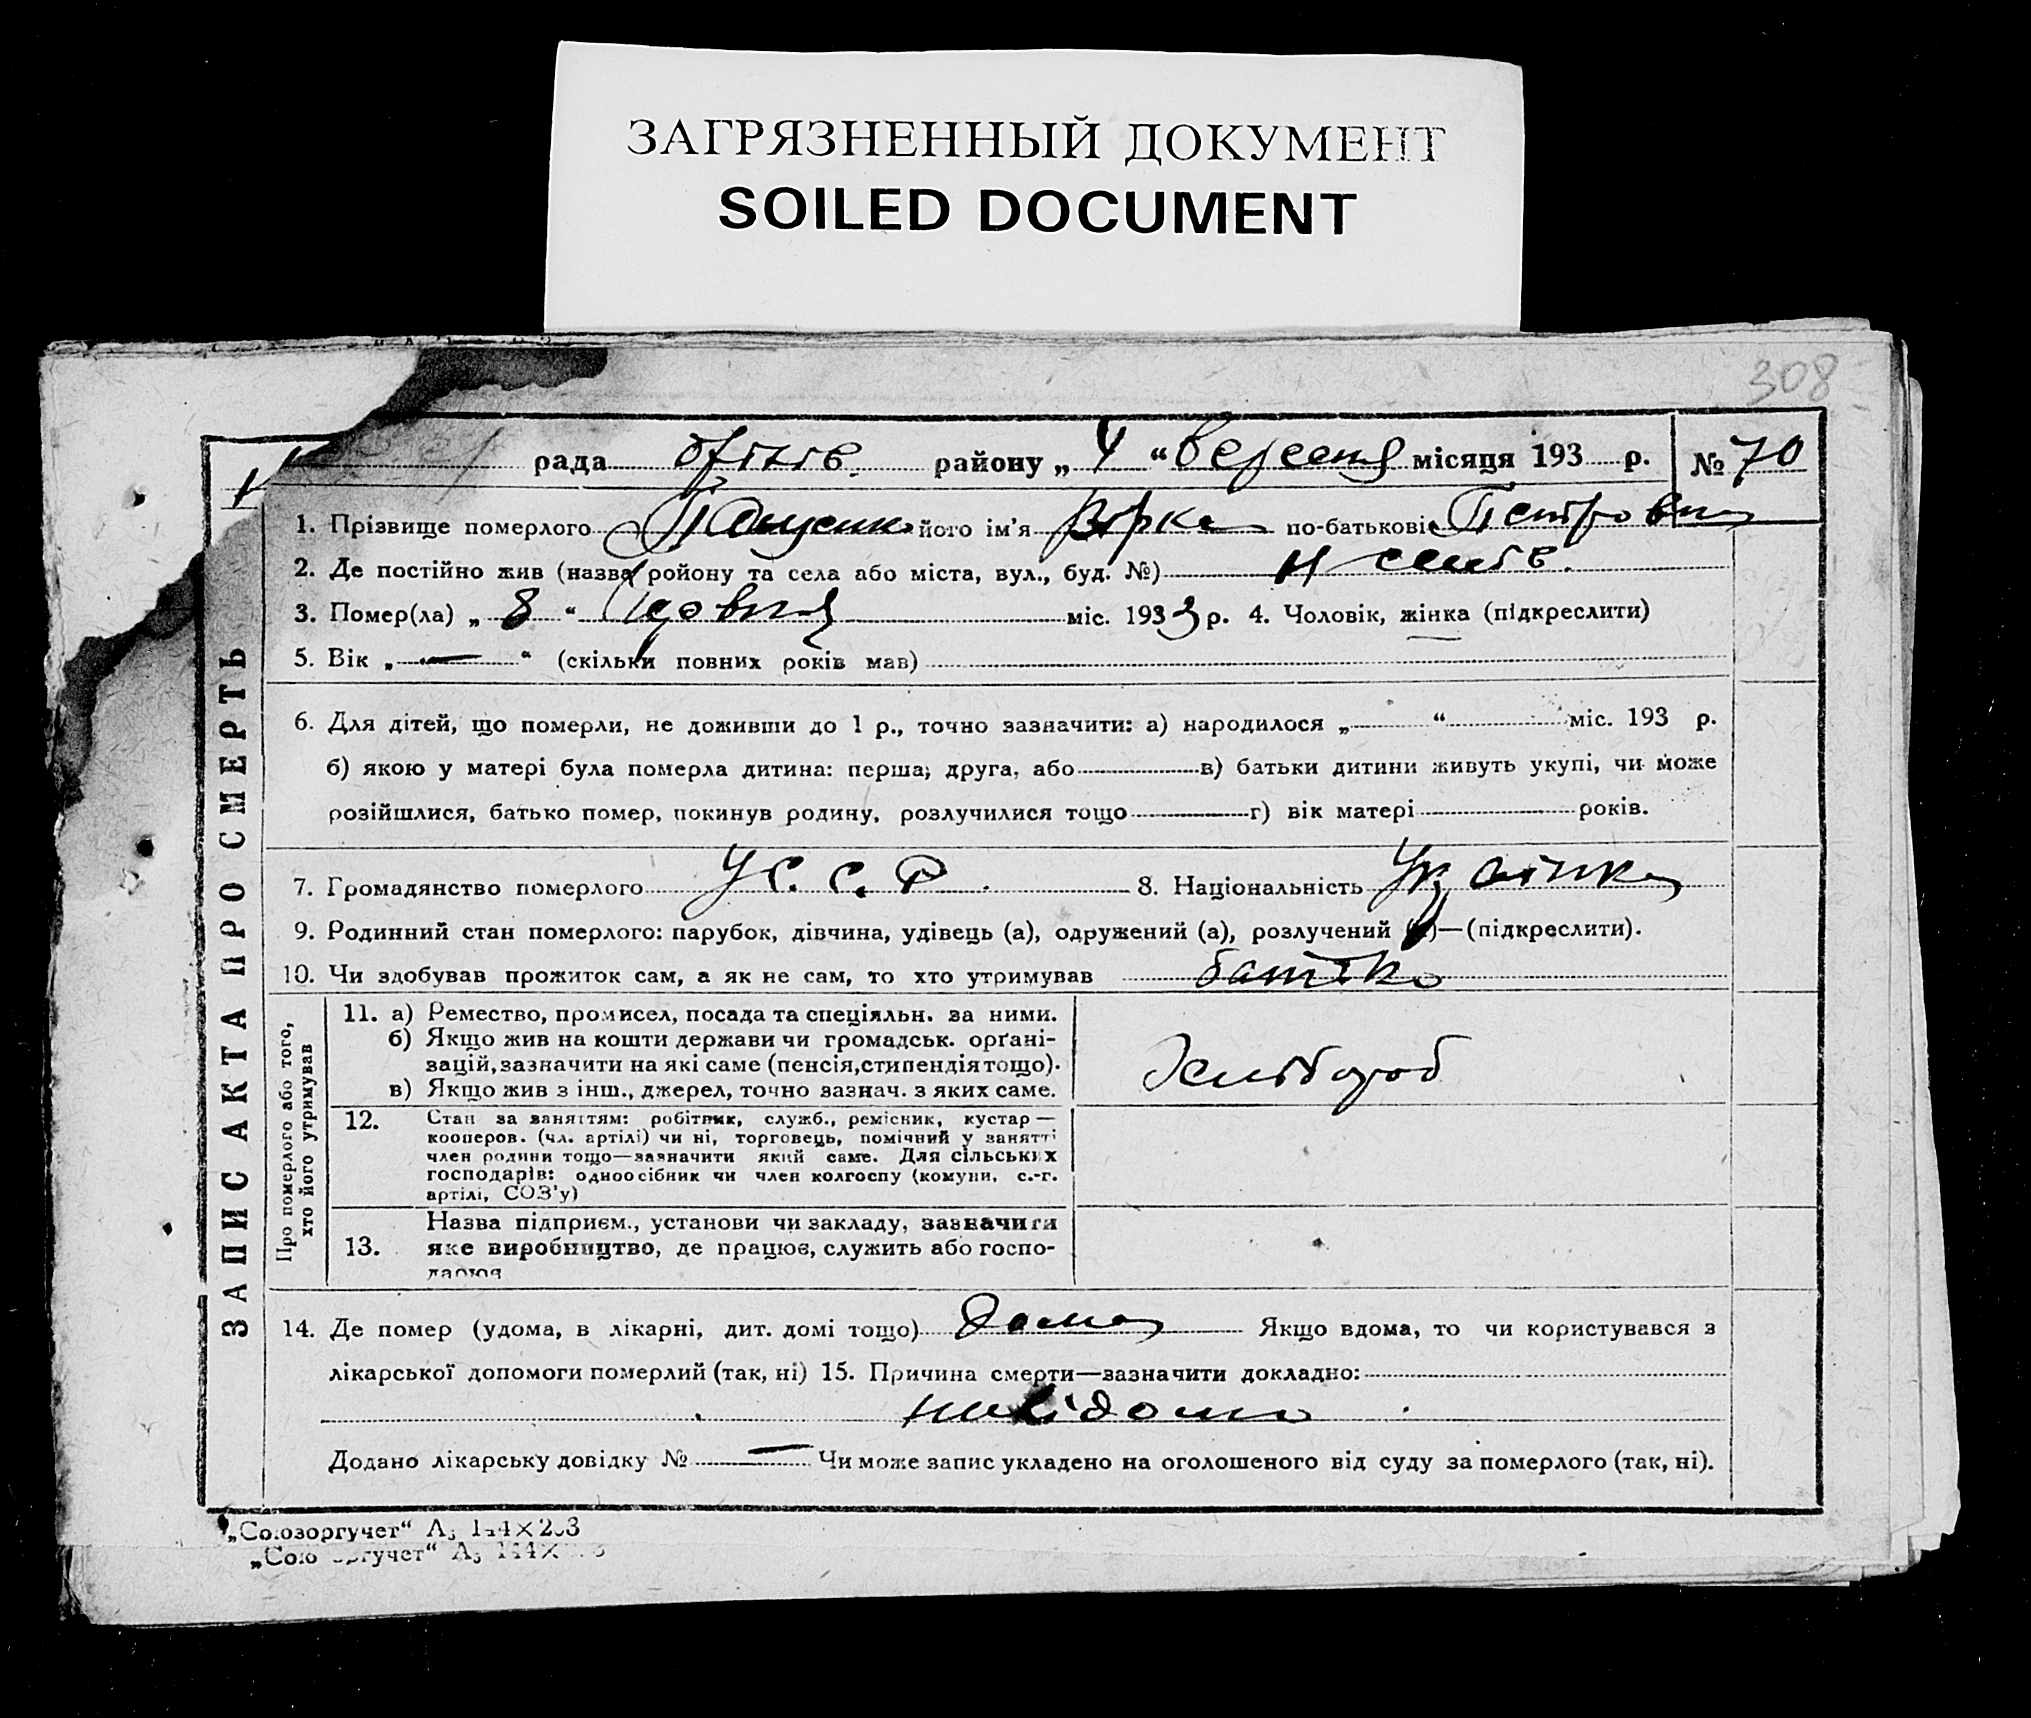 ЗАГРЯЗНЕННЫЙ ДОКУМЕНТ
SOILED DOCUMENT
308
рада району „ 4 “ Вересня місяця 193 р. № 70
ЗАПИС АКТА ПРО СМЕРТЬ
1. Прізвище померлого його ім’я по-батькові Петровна
2. Де постійно жив (назва ройону та села або міста, вул., буд. №)
3. Помер(ла) „ 8 “ міс. 1933 р. 4. Чоловік, жінка (підкреслити)
5. Вік „ — “ (скільки повних років мав)
6. Для дітей, що померли, не доживши до 1 р., точно зазначити: а) народилося „ “ міс. 193 р.
б) якою у матері була померла дитина: перша, друга, або в) батьки дитини живуть укупі, чи може
розійшлися, батько помер, покинув родину, розлучилися тощо г) вік матері років.
7. Громадянство померлого У С. С. Р. 8. Національність
9. Родинний стан померлого: парубок, дівчина, удівець (а), одружений (а), розлучений (а)—(підкреслити).
10. Чи здобував прожиток сам, а як не сам, то хто утримував батько
Про померлого або того,
хто його утримував
11. а) Ремество, промисел, посада та спеціяльн. за ними.
б) Якщо жив на кошти держави чи громадськ. орґані-
зацій, зазначити на які саме (пенсія, стипендія тощо).
в) Якщо жив з інш., джерел, точно зазнач. з яких саме.
хлібороб
12. Стан за заняттям: робітник, служб., ремісник, кустар—
кооперов. (чл. артілі) чи ні, торговець, помічний у занятті
член родини тощо—зазначити який саме. Для сільських
господарів: одноосібник чи член колгоспу (комуни, с.-г.
артілі, СОЗ’у)
13. Назва підприєм., установи чи закладу, зазначити
яке виробництво, де працює, служить або госпо-
дарює
14. Де помер (удома, в лікарні, дит. домі тощо) дома Якщо вдома, то чи користувався з
лікарської допомоги померлий (так, ні) 15. Причина смерти—зазначити докладно:
невідомо
Додано лікарську довідку № — Чи може запис укладено на оголошеного від суду за померлого (так, ні).
„Союзоргучет“ А₅ 144×203
„Союзоргучет“ А₅ 144×203